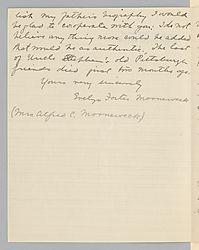 lish my father's biography I would
be glad to cooperate with you; I do not
believe any thing more could be added
that would be as authentic. The last
of Uncle Stephen's old Pittsburgh
friends died just two months ago.
Yours very sincerely
Evelyn Foster Morneweck
(Mrs Alfred C. Morneweck)